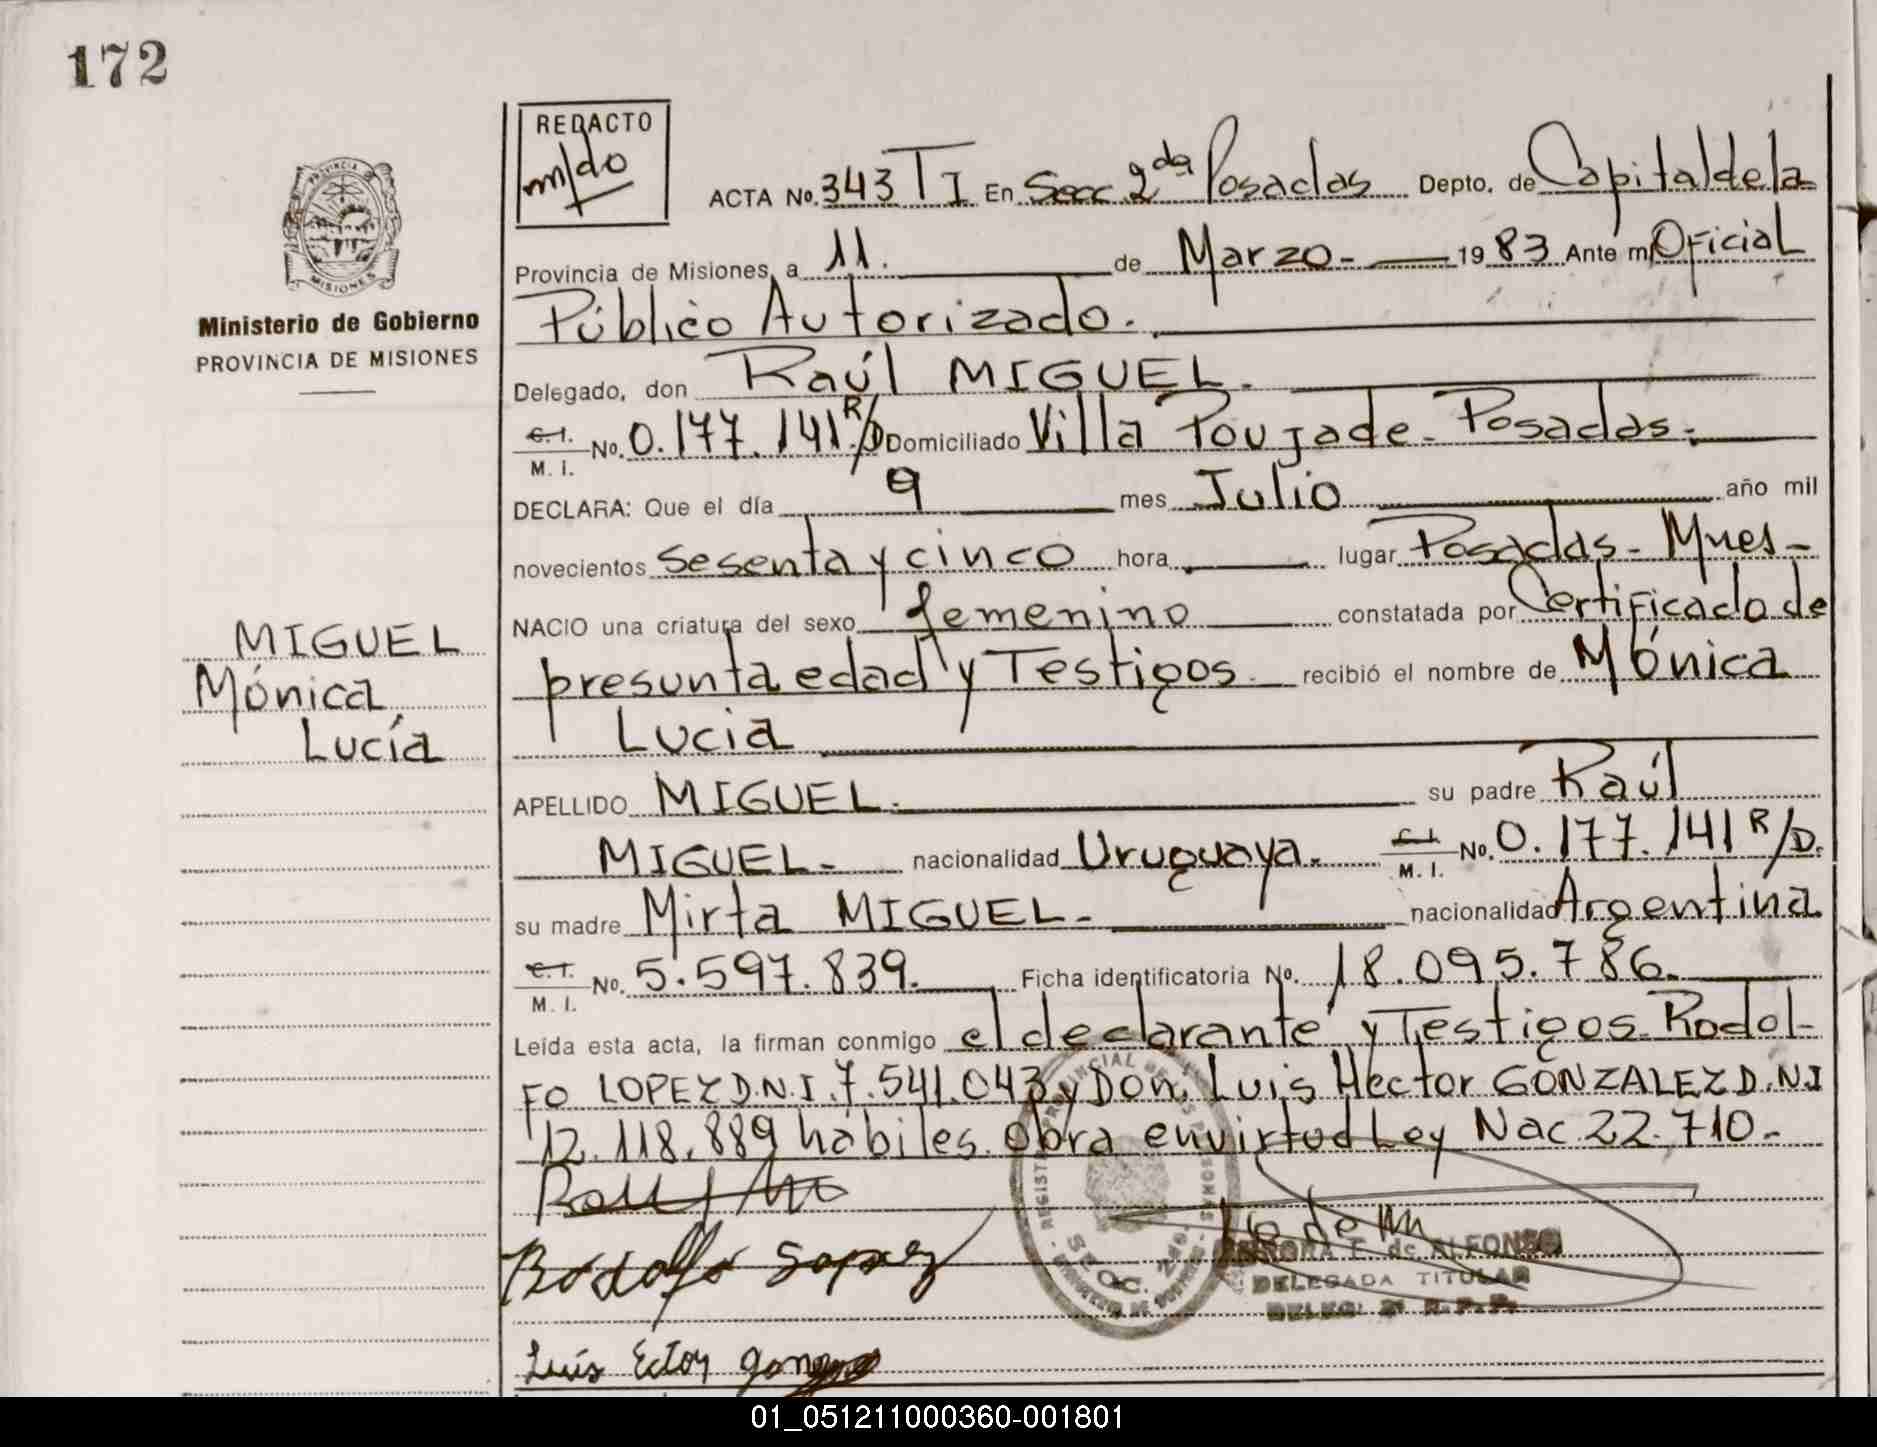 172
REDACTO
m/do
ACTA No. 343 TI En Secc 2da Posadas Depto. de Capital de la
Provincia de Misiones, a 11. de Marzo- 19 83 Ante mi Oficial
Público Autorizado.
Ministerio de Gobierno
PROVINCIA DE MISIONES
Delegado, don Raúl MIGUEL.
C.I. M.I. No. 0.177.141 R/D Domiciliado Villa Poujade- Posadas.
DECLARA: Que el día 9 mes Julio año mil
novecientos sesenta y cinco hora lugar Posadas- Mnes-
NACIO una criatura del sexo femenino constatada por Certificado de
presunta edad y Testigos. recibió el nombre de Mónica
Lucia
MIGUEL
Mónica
Lucía
APELLIDO MIGUEL. su padre Raúl
MIGUEL- nacionalidad Uruguaya. C.I. M.I. No. 0.177.141 R/D.
su madre Mirta MIGUEL- nacionalidad Argentina
C.I. M.I. No. 5.597.839. Ficha identificatoria No. 18.095.786.
Leída esta acta, la firman conmigo el declarante y Testigos Rodol-
FO LOPEZ D.N.I. 7.541.043 y Don Luis Hector GONZALEZ D.N.I
12.118.889 habiles. Obra en virtud Ley Nac. 22.710-
Rodolfo Lopez
de ALFONSO
DELEGADA TITULAR
Luis Ector
01_051211000360-001801